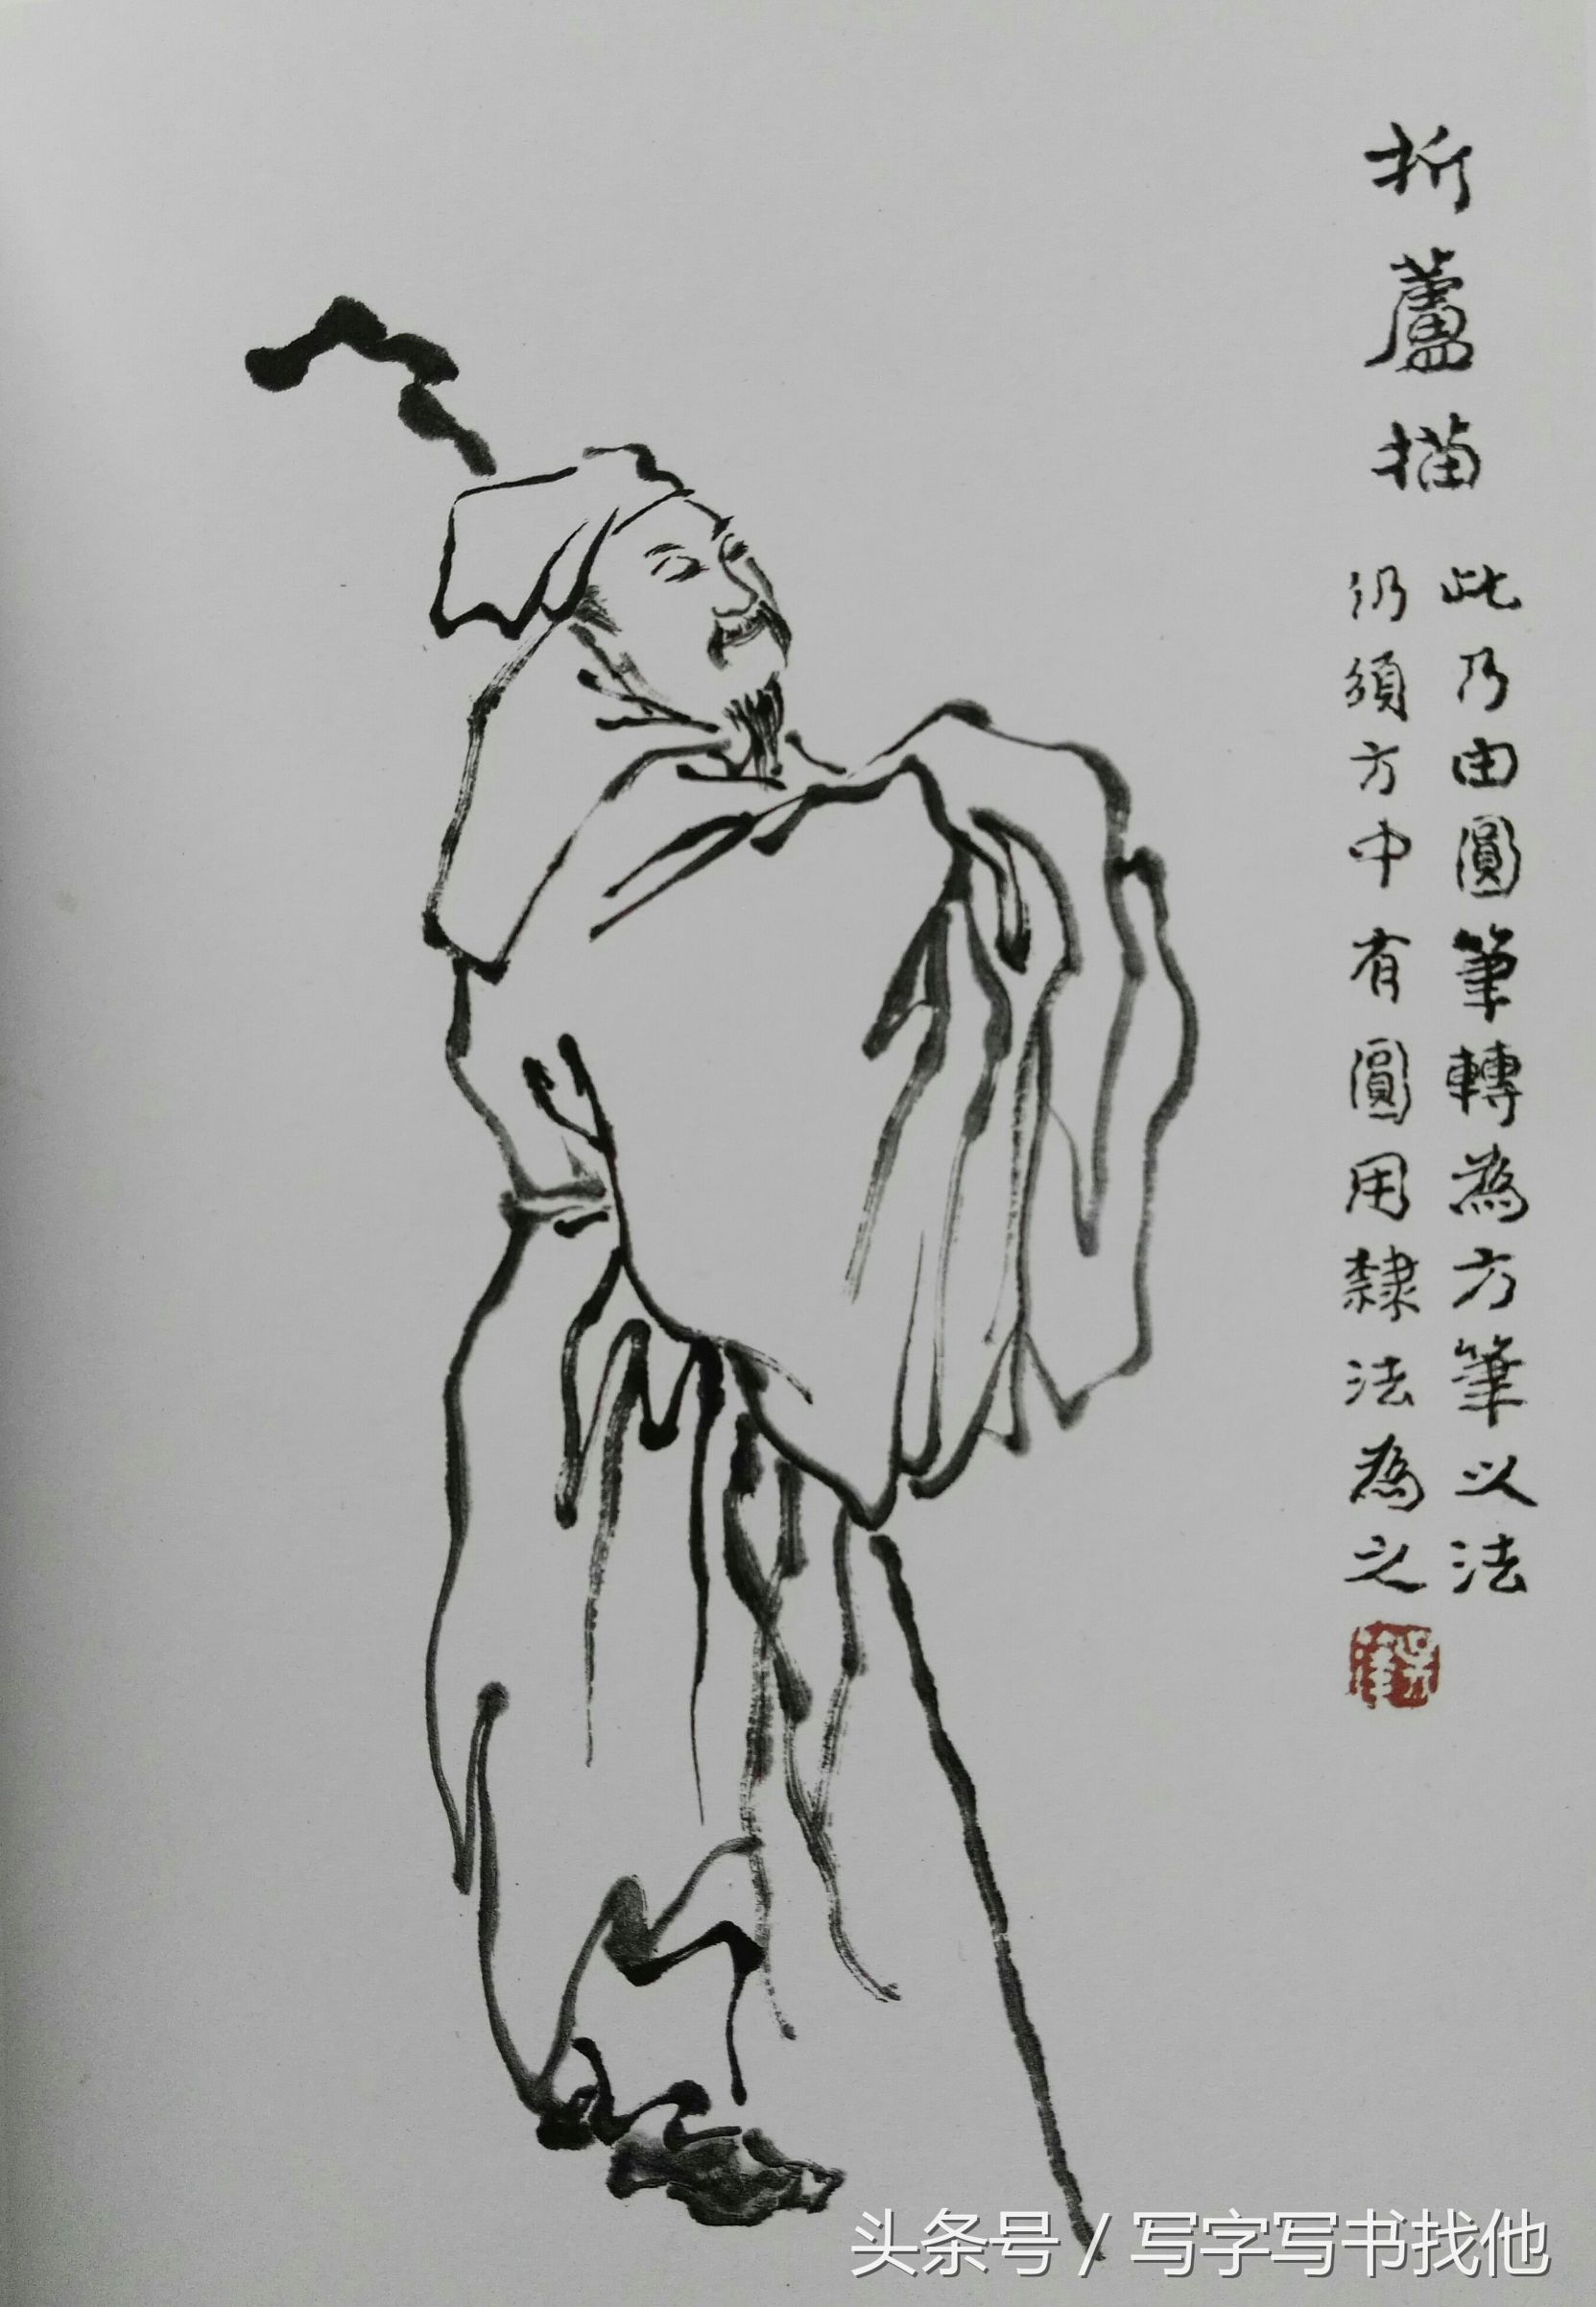 折蘆描
此乃由圓筆轉為方筆以法
仍須方中有圓用隸法為之
头条号 / 写字写书找他